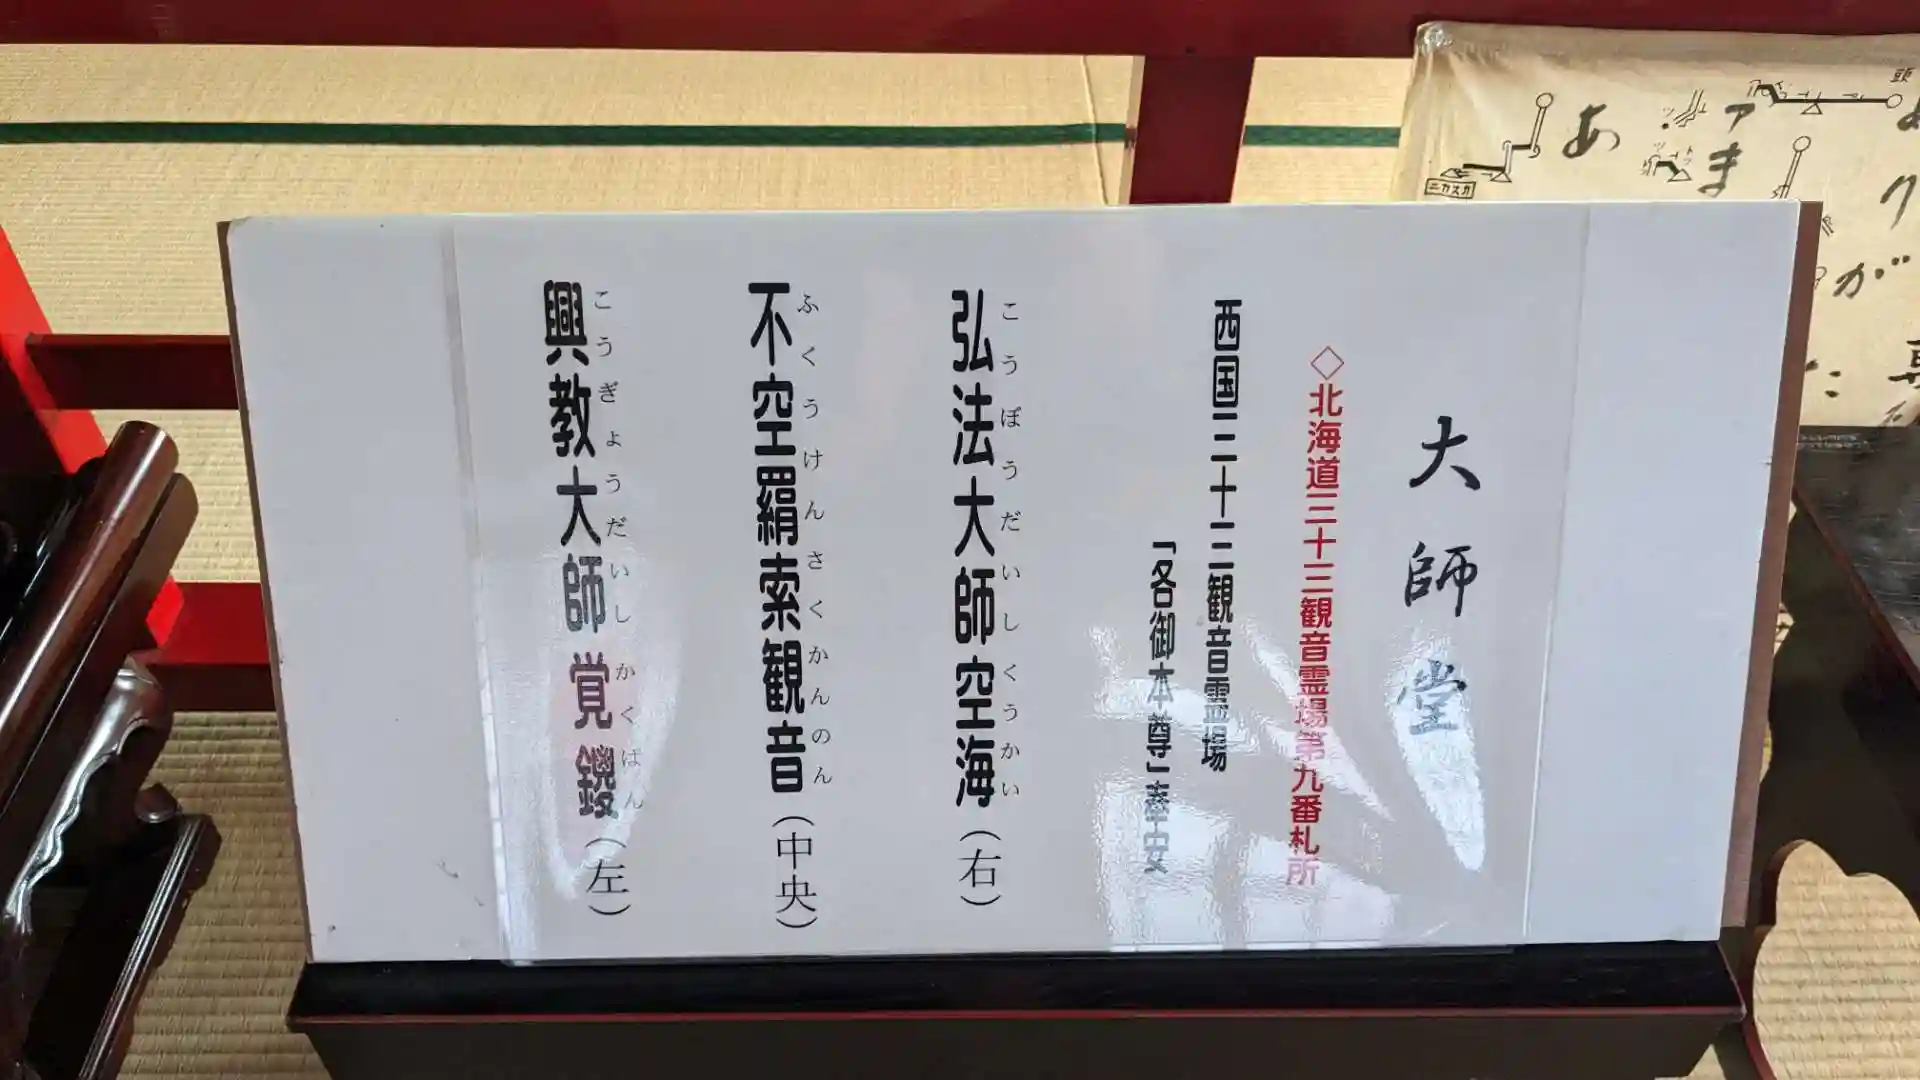 大師堂
◇北海道三十三観音霊場第九番札所
西国三十三観音霊場
「各御本尊」奉安
こうぼうだいしくうかい
弘法大師空海（右）
ふくうけんさくかんのん
不空羂索観音（中央）
こうぎょうだいしかくばん
興教大師覚鑁（左）
頭
あ
ま
が
た
ニカスカ